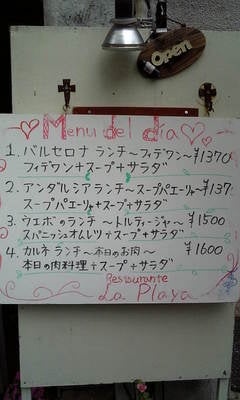 Open
Menu del día
1. バルセロナ ランチ〜フィデワン〜¥1370
フィデワン+スープ+サラダ
2. アンダルシアランチ〜スープパエーリャ〜¥137
スープパエーリャ+スープ+サラダ
3. ウエボのランチ 〜トルティージャ〜 ¥1500
スパニッシュオムレツ+スープ+サラダ
4. カルネ ランチ 〜本日のお肉〜 ¥1600
本日の肉料理+スープ+サラダ
Restaurante
La Playa